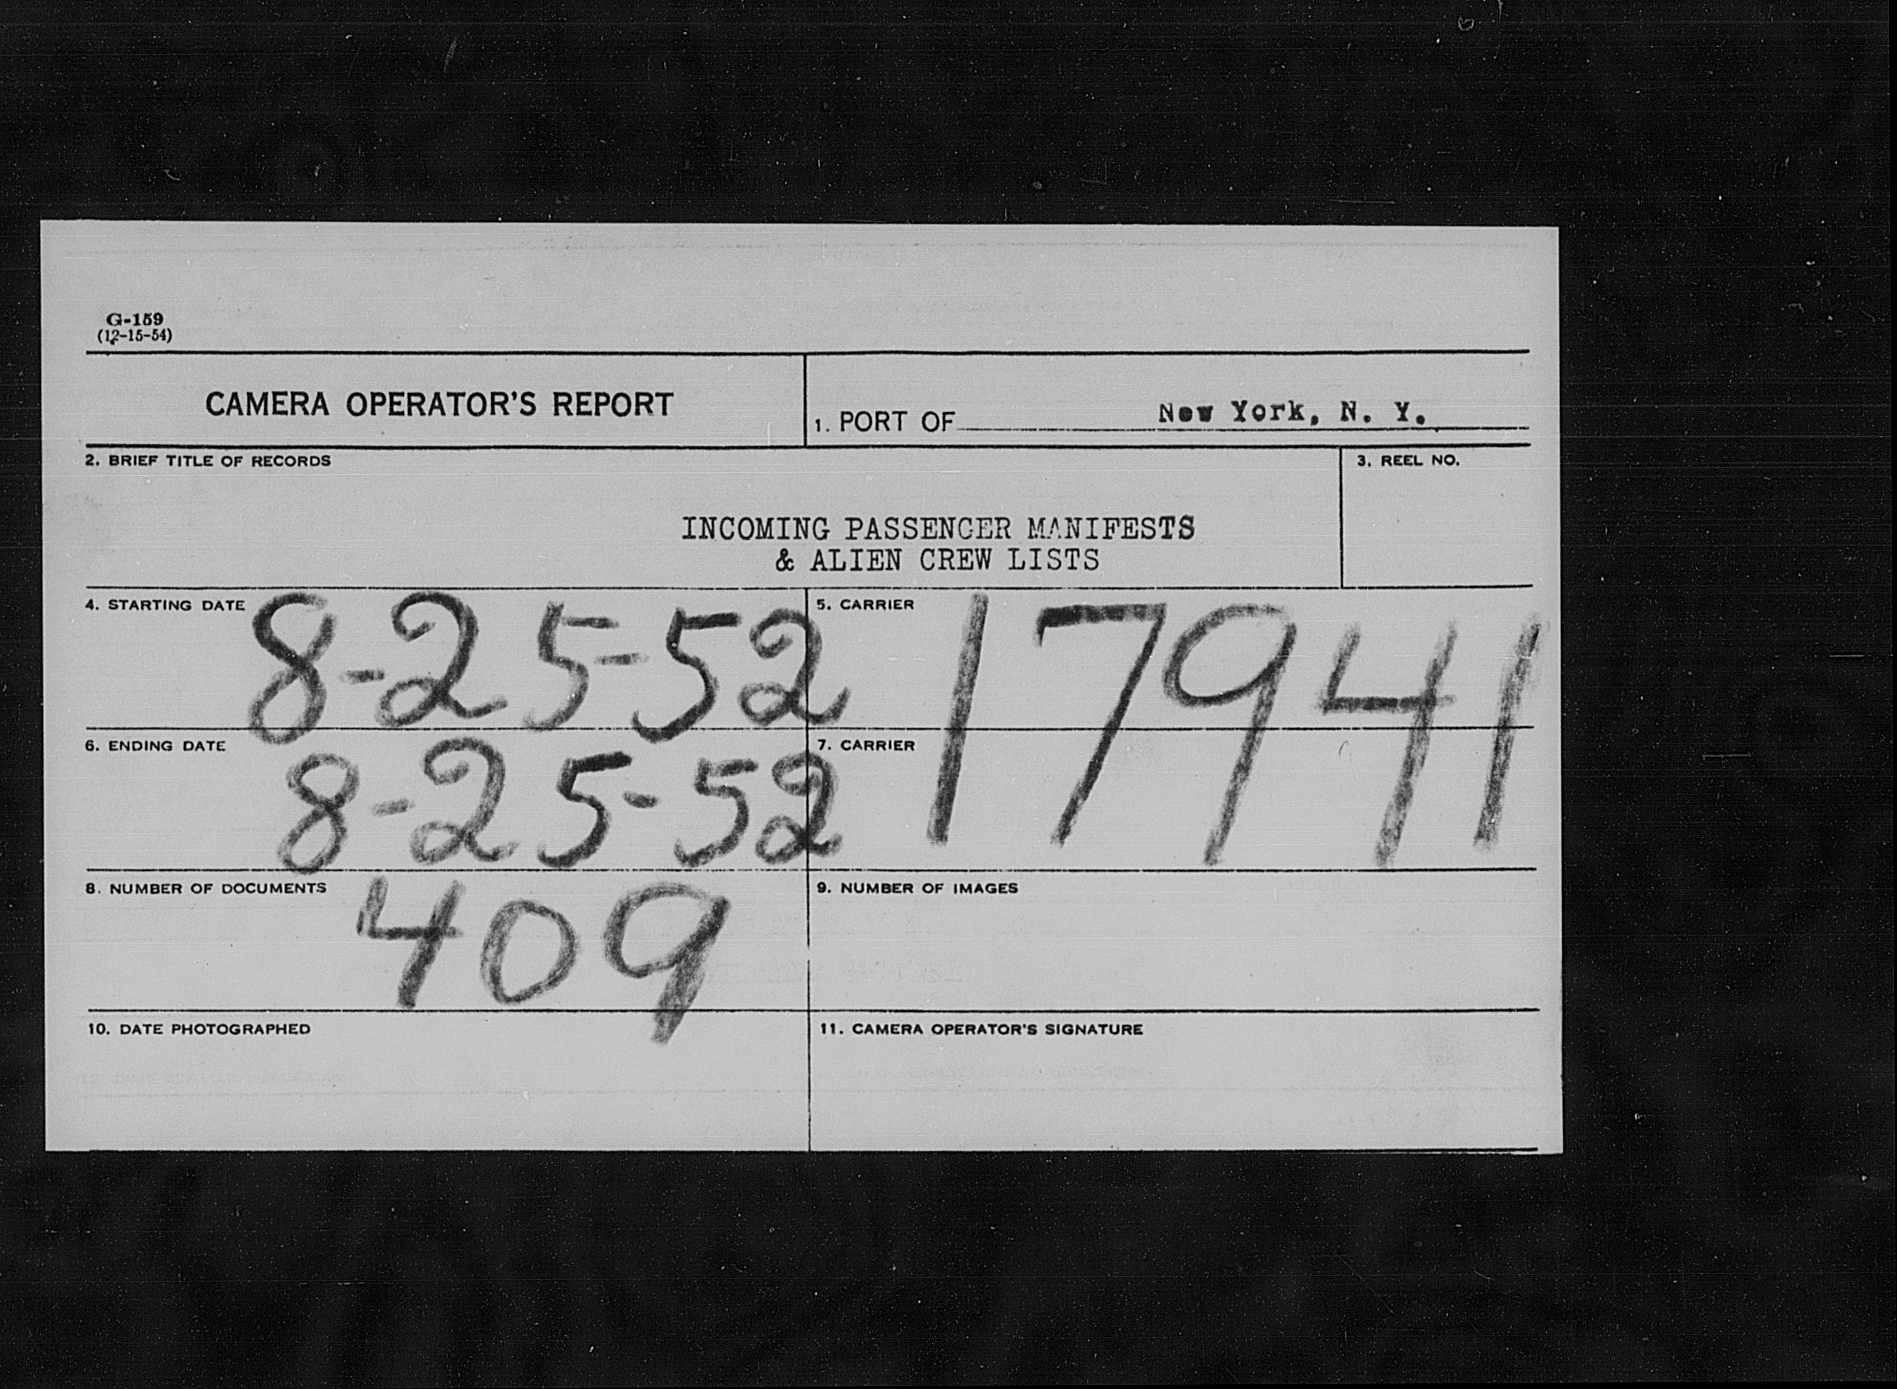 G-159
(12-15-54)
CAMERA OPERATOR'S REPORT
1. PORT OF New York, N. Y.
2. BRIEF TITLE OF RECORDS
3. REEL NO.
INCOMING PASSENGER MANIFESTS
& ALIEN CREW LISTS
4. STARTING DATE 8-25-52
5. CARRIER 17941
6. ENDING DATE 8-25-52
7. CARRIER
8. NUMBER OF DOCUMENTS 409
9. NUMBER OF IMAGES
10. DATE PHOTOGRAPHED
11. CAMERA OPERATOR'S SIGNATURE